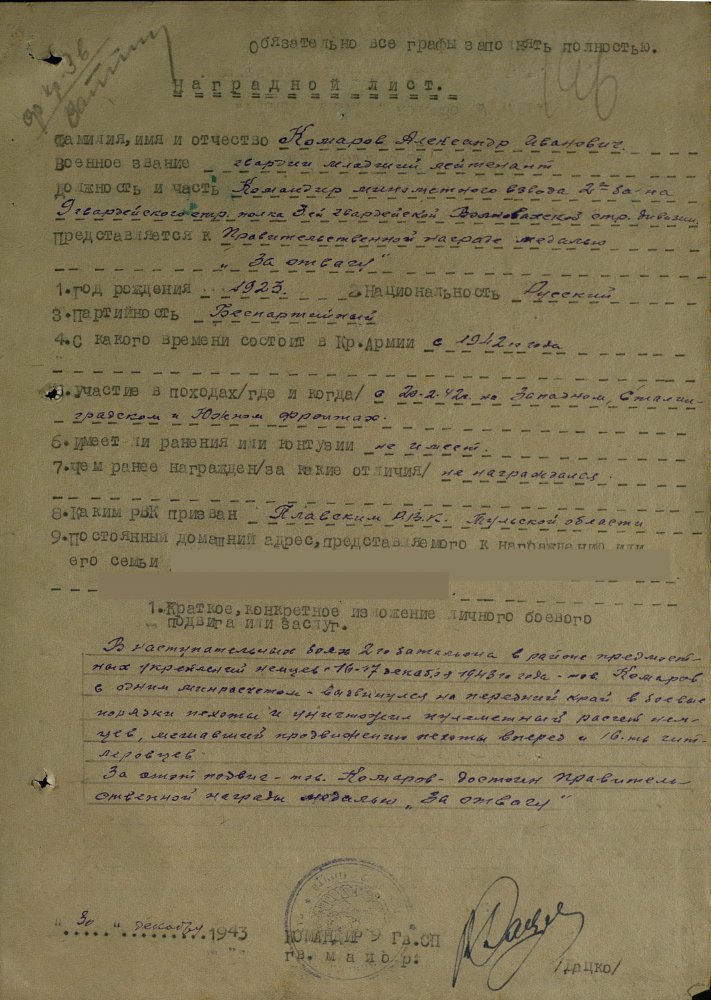 Обязательно все графы заполнять полностью.
Наградной лист.
196
Фамилия, имя и отчество Комаров Александр Иванович.
Военное звание гвардии младший лейтенант
Должность и часть Командир минометного взвода 2го ба-на
9 гвардейского стр. полка 3ей гвардейской Волновахской стр. дивизии
Представляется к Правительственной награде медалью
"За отвагу"
1. Год рождения 1923. 2. Национальность Русский
3. Партийность Беспартийный
4. С какого времени состоит в Кр. Армии с 1942 года
5. Участие в походах /где и когда/ с 20.2.42г. на Западном, Сталин-
градском и Южном фронтах.
6. Имеет ли ранения или контузии не имеет.
7. Чем ранее награжден /за какие отличия/ не награждался.
8. Каким РВК призван Плавским Р.В.К. Тульской области
9. Постоянный домашний адрес, представляемого к награждению или
его семьи
1. Краткое, конкретное изложение личного боевого
подвига или заслуг.
В наступательных боях 2го батальона в районе предмост-
ных укреплений немцев 16-17 декабря 1943го года - тов. Комаров
с одним минрасчетом - выдвинулся на передний край в боевые
порядки пехоты и уничтожил пулеметный расчет нем-
цев, мешавший продвижению пехоты вперед и 16-ть гит-
леровцев.
За этот подвиг - тов. Комаров - достоин правитель-
ственной награды медалью "За отвагу"
"30" декабря 1943
КОМАНДИР 9 Гв.СП
гв. майор:
/Дацко/